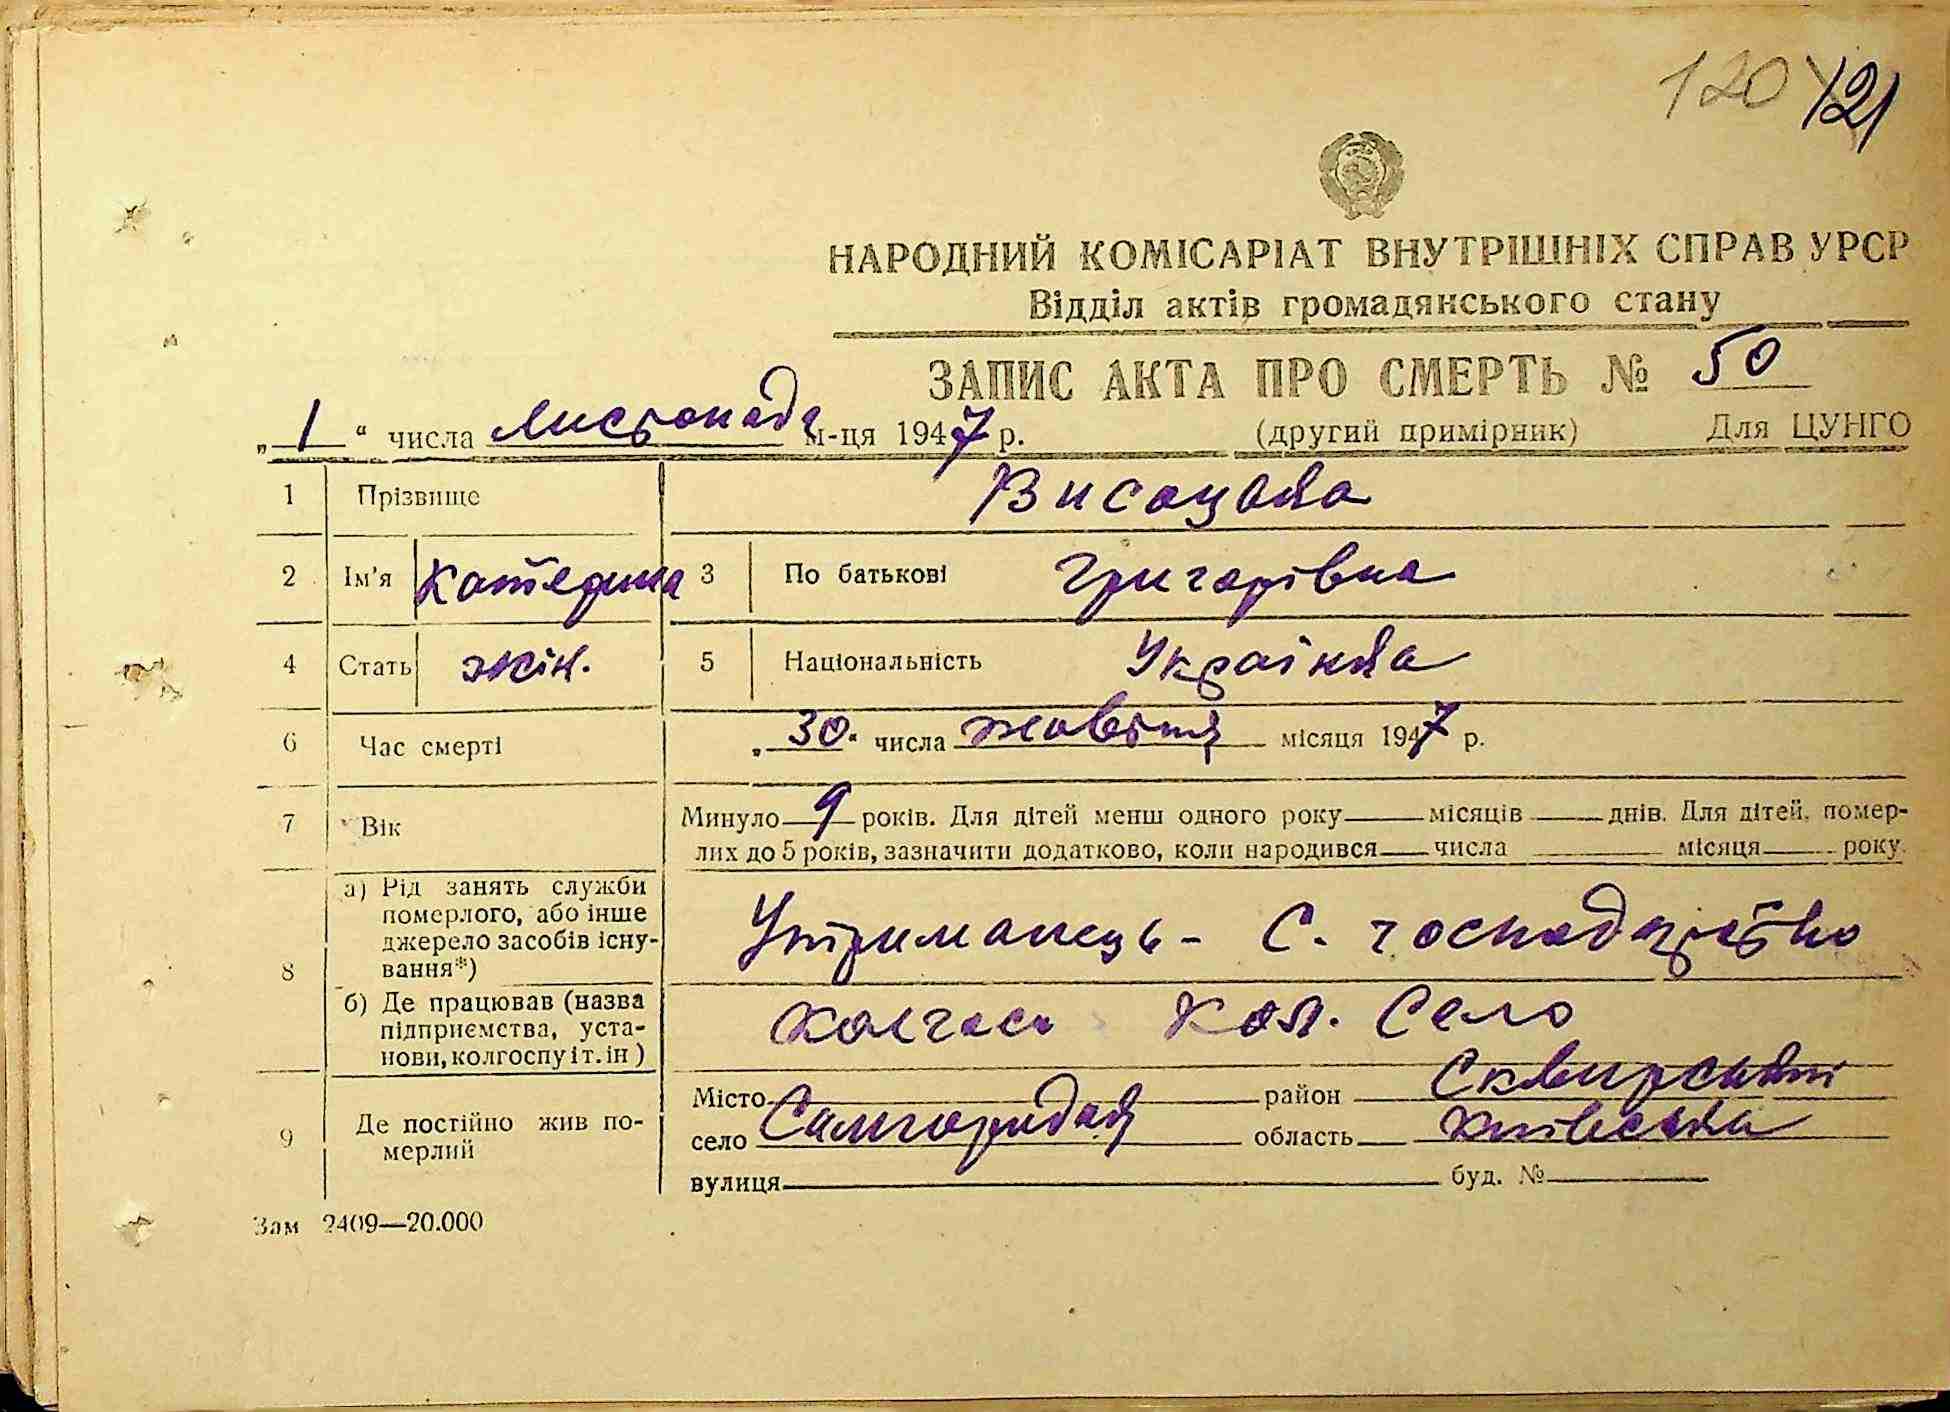 120 121
НАРОДНИЙ КОМІСАРІАТ ВНУТРІШНІХ СПРАВ УРСР
Відділ актів громадянського стану
ЗАПИС АКТА ПРО СМЕРТЬ № 50
„1“ числа листопада м-ця 1947 р. (другий примірник) Для ЦУНГО
1 Прізвище Висоцька
2 Ім'я Катерина 3 По батькові Григорівна
4 Стать жін. 5 Національність Українка
6 Час смерті „30“ числа жовтня місяця 1947 р.
7 Вік Минуло 9 років. Для дітей менш одного року місяців днів. Для дітей, помер-
лих до 5 років, зазначити додатково, коли народився числа місяця року
8 а) Рід занять служби
померлого, або інше
джерело засобів існу-
вання*)
Утриманець - С. господарство
б) Де працював (назва
підприємства, уста-
нови, колгоспу і т. ін)
Колгосп Село
9 Де постійно жив по-
мерлий
Місто район Сквирський
село Самгородок область Київська
вулиця буд. №
Зам 2409—20.000